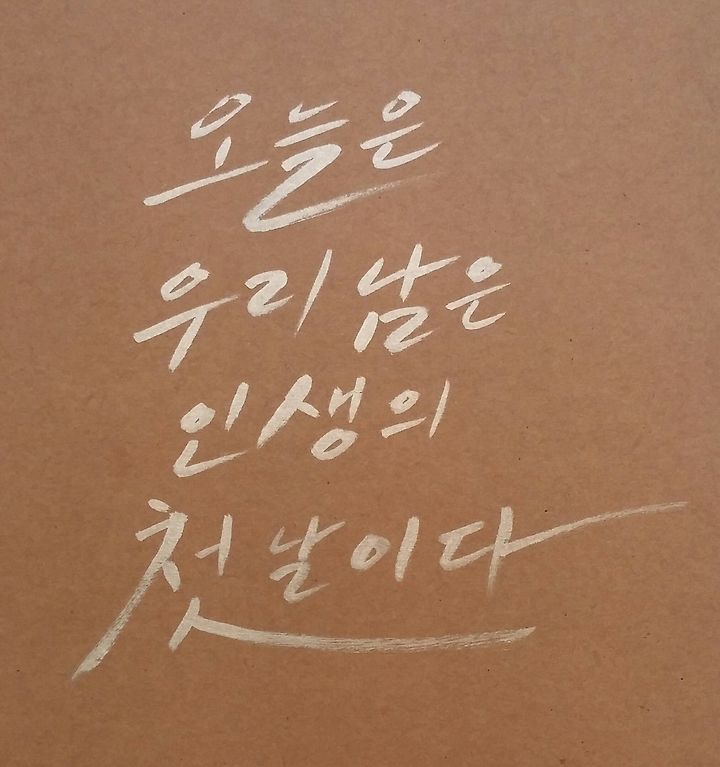 오늘은
우리 남은
인생의
첫날이다